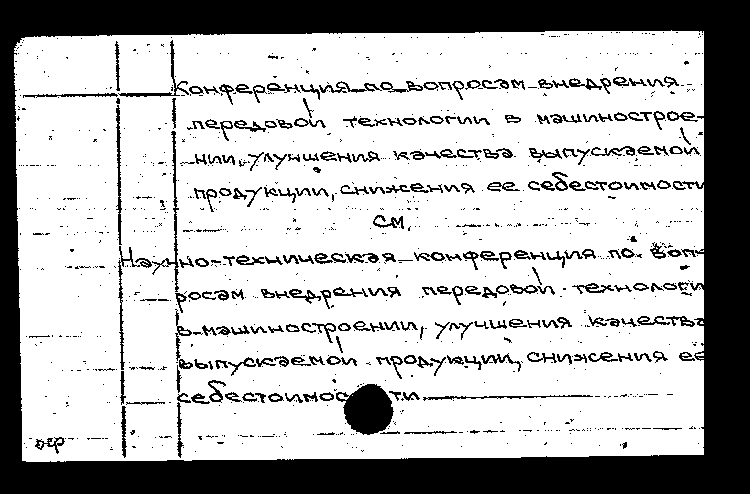 Конференция по вопросам внедрения
передовой технологии в машинострое-
нии, улучшения качества выпускаемой
продукции, снижения ее себестоимости
см.
Научно-техническая конференция по воп-
росам внедрения передовой технологии
в машиностроении, улучшения качества
выпускаемой продукции, снижения ее
себестоимости.